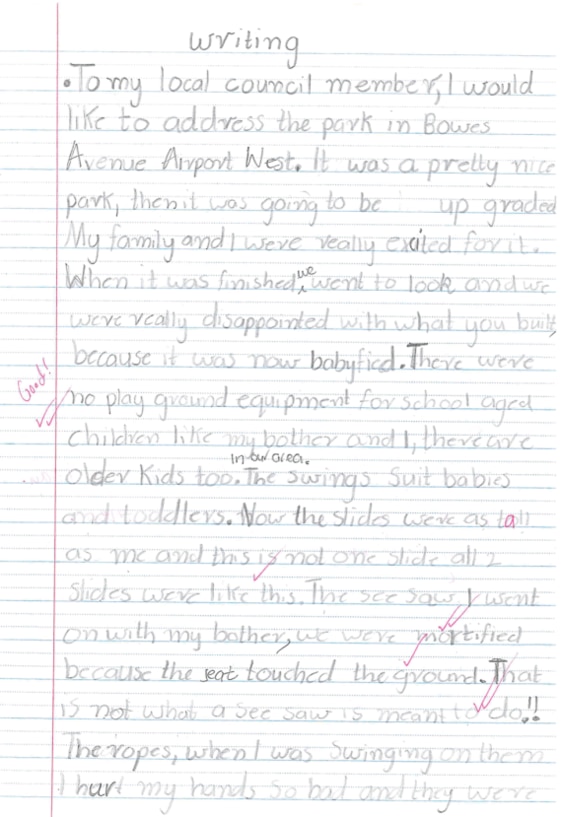 Writing
.To my local council member, I would
like to address the park in Bowes
Avenue Airport West. It was a pretty nice
park, then it was going to be up graded
My family and I were really exited for it.
When it was finished, we went to look and we
were really disappointed with what you built,
because it was now babyfied. There were
Good!
no play ground equipment for school aged
children like my bother and I, there are
in our area.
older kids too. The swings suit babies
and toddlers. Now the slides were as tall
as me and this is not one slide all 2
slides were like this. The see saw I went
on with my bother, we were mortified
because the seat touched the ground. That
is not what a see saw is meant to do!!
The ropes, when I was swinging on them
I hurt my hands so bad and they were